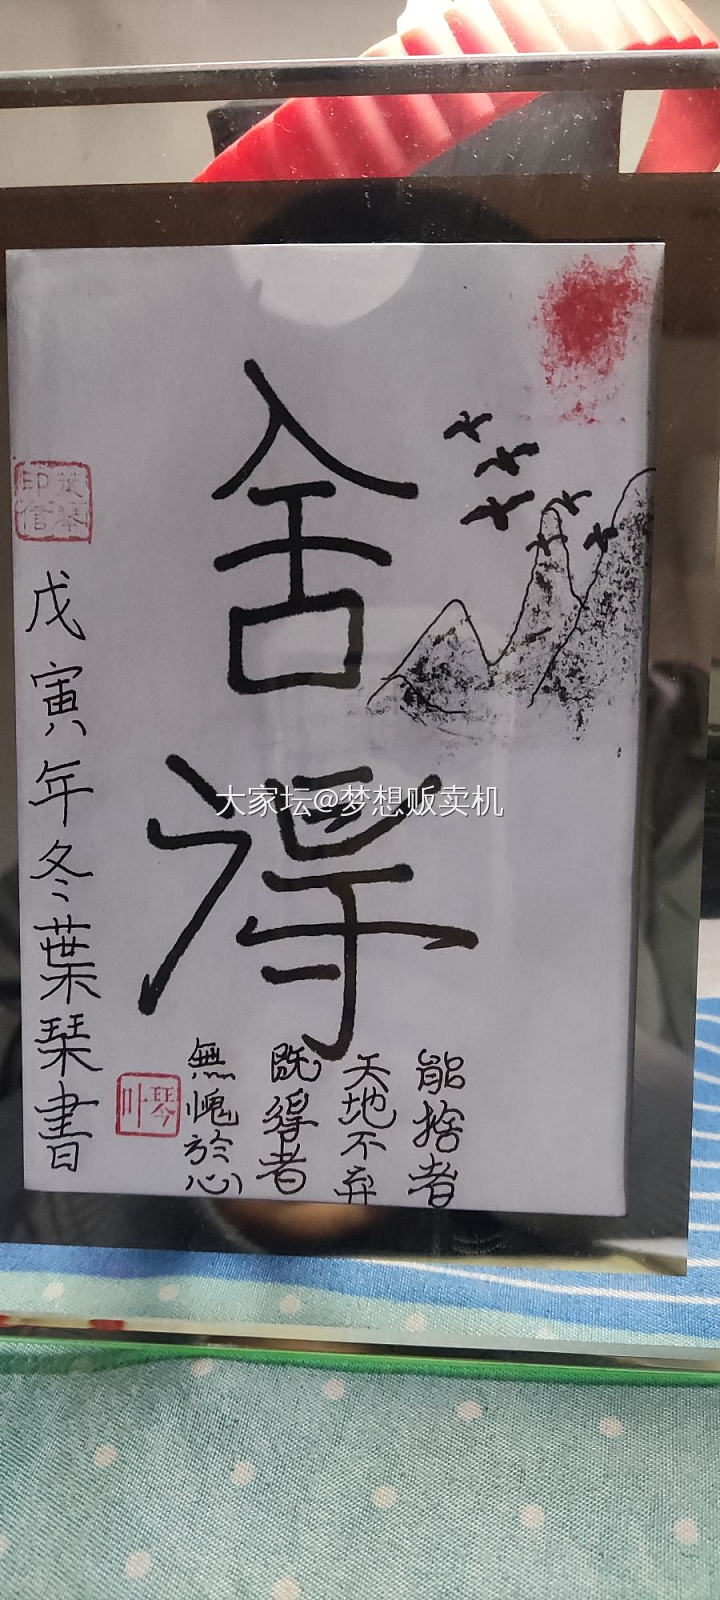 舍
得
能捨者
天地不弃
既得者
無愧於心
戊寅年冬葉琹書
葉琴印信
叶琴
大家坛@梦想贩卖机